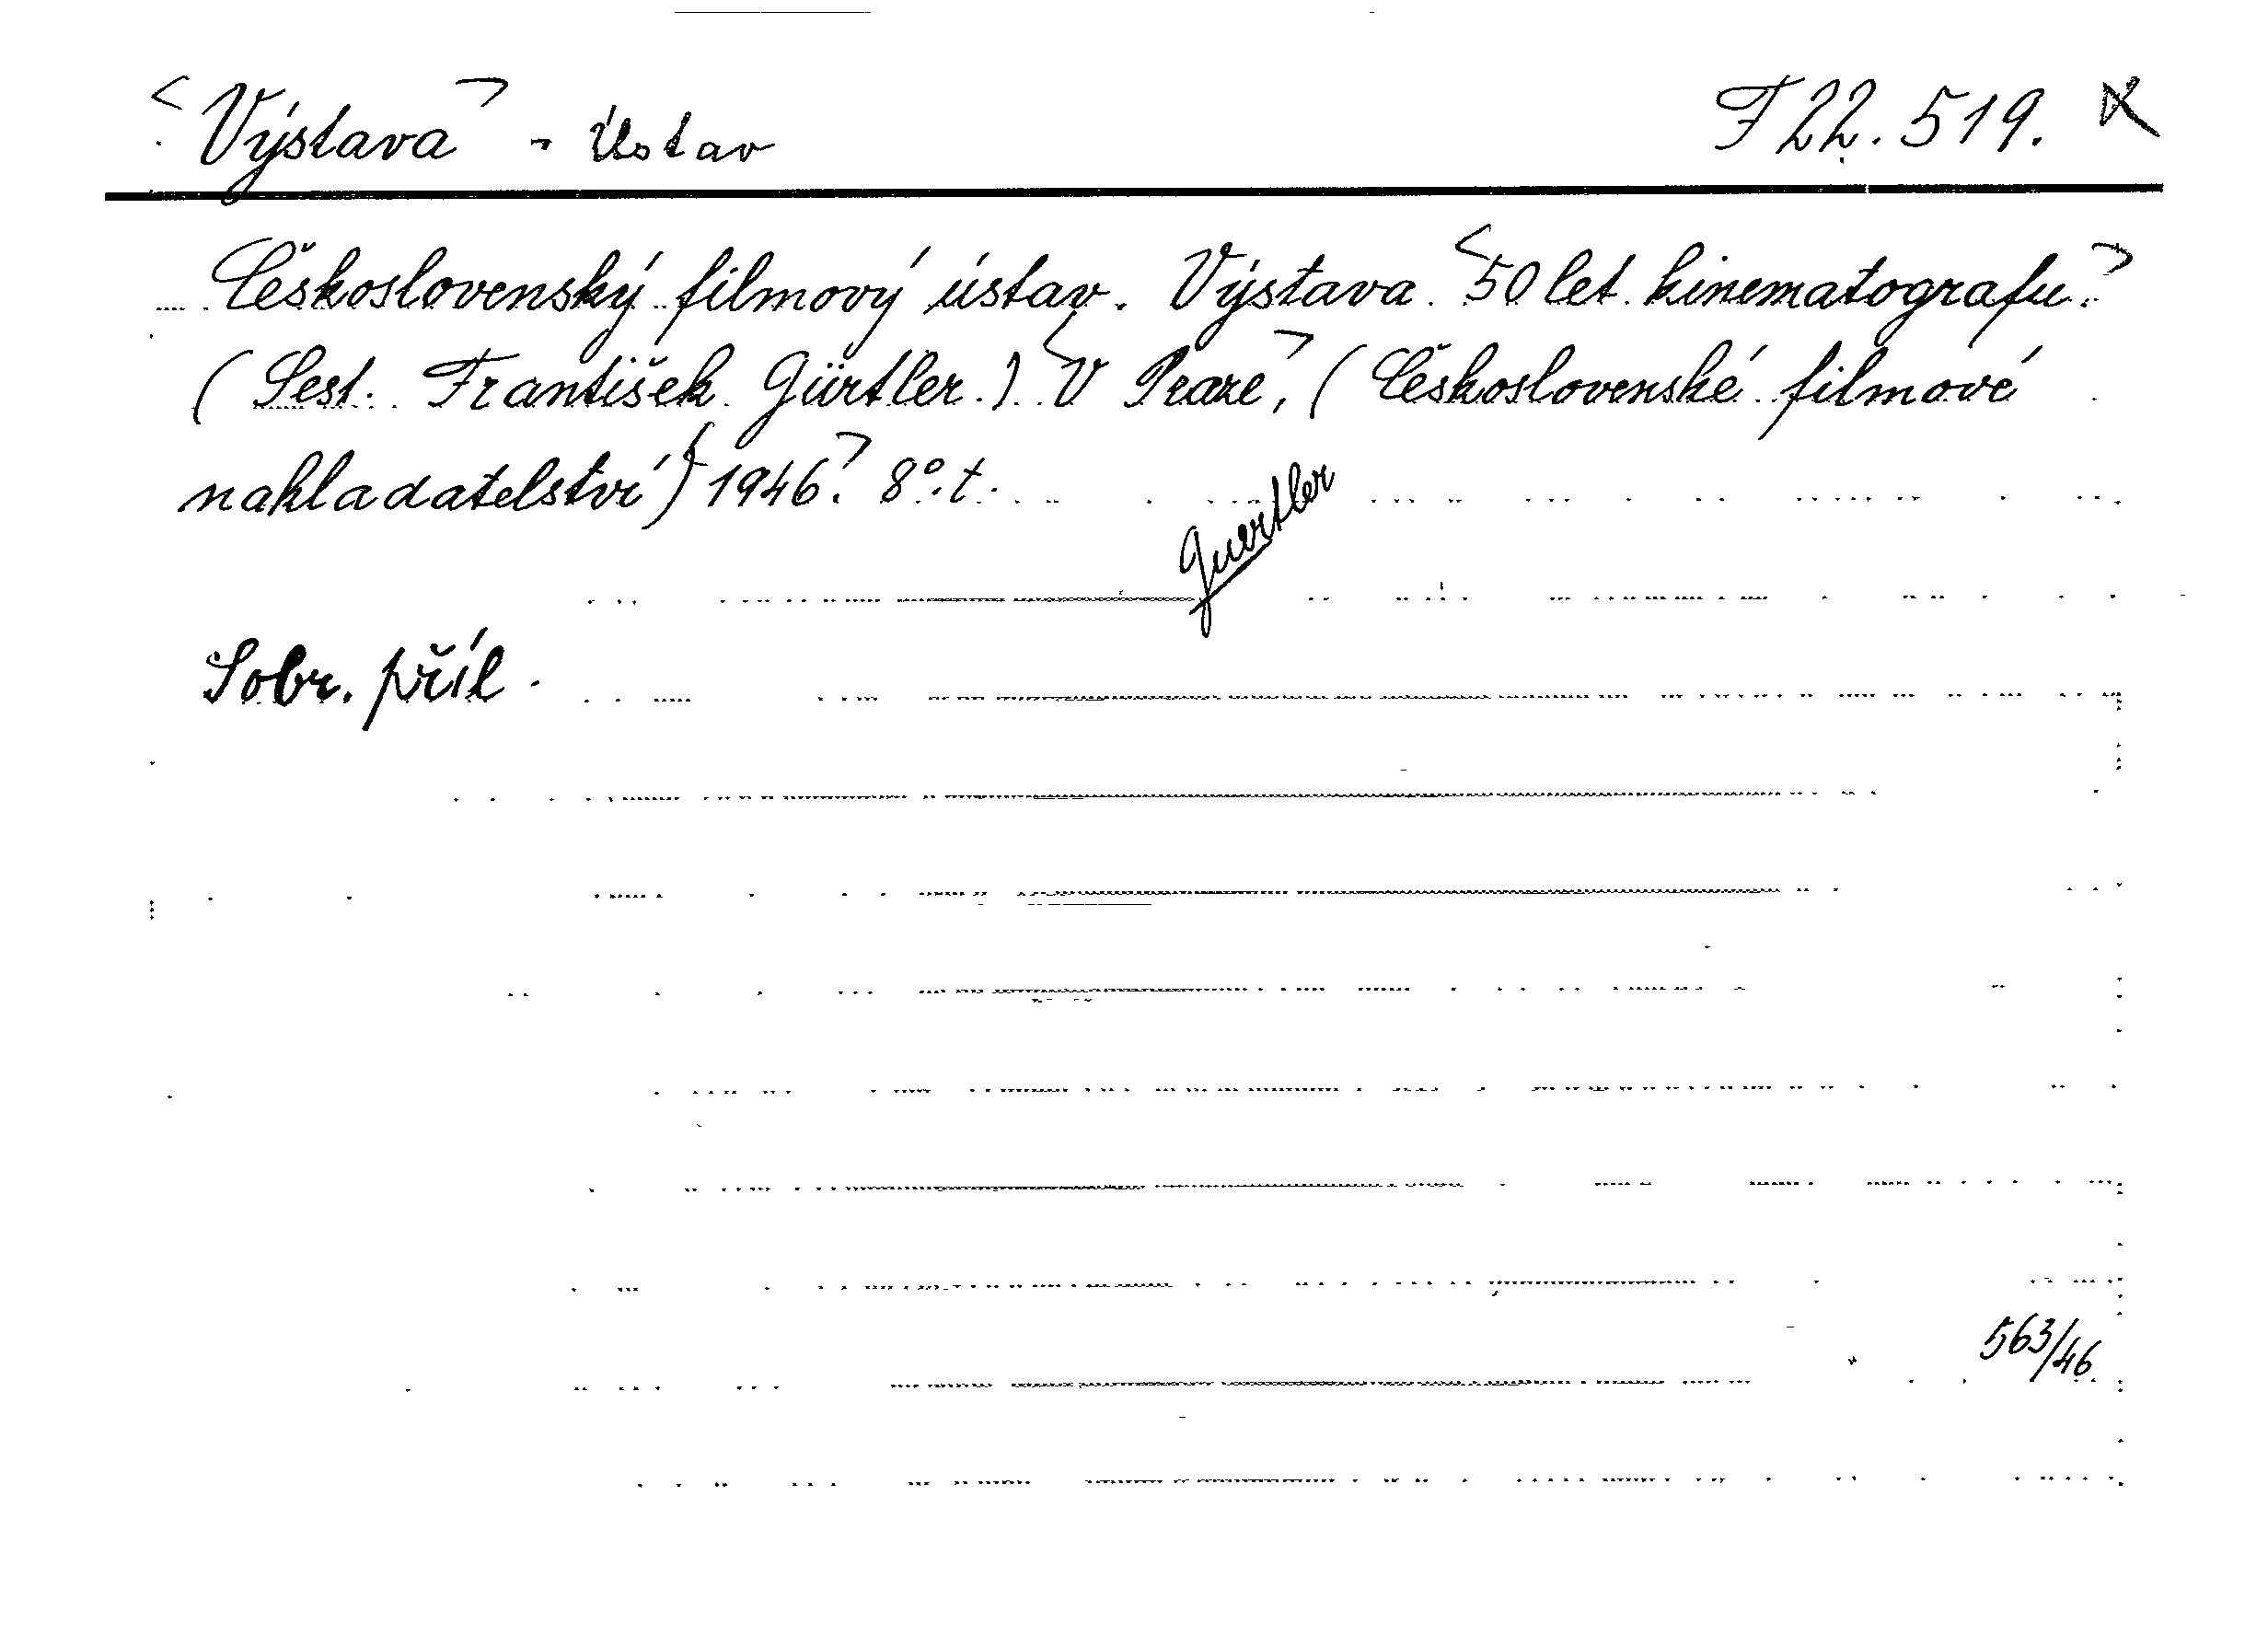 <Výstava> - Ústav F 22.519.
Československý filmový ústav. Výstava <50 let kinematografu.>
(Sest. František Gürtler.) <V Praze>, (Československé filmové
nakladatelství) <1946>. 8°. t.
Guertler
Sobr. příl.
563/46